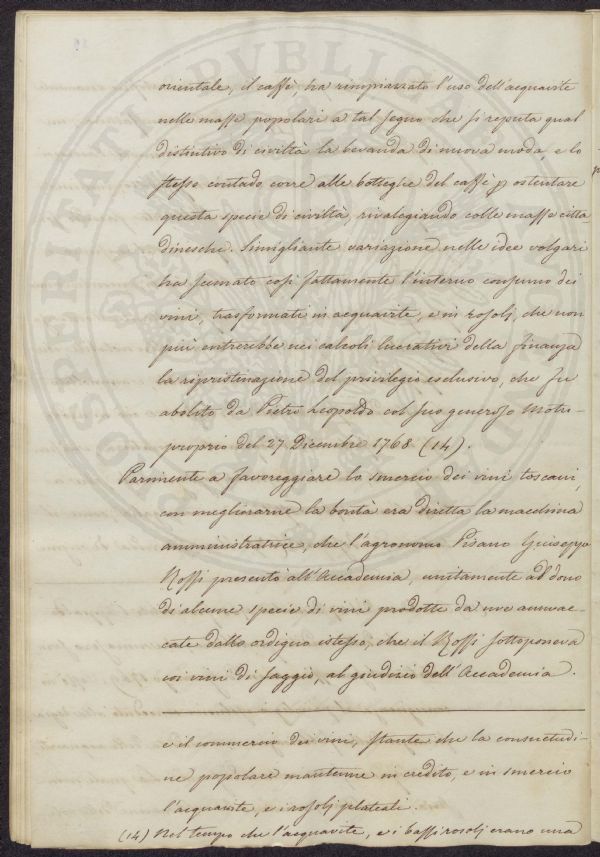 orientale, il caffè, ha rimpiazzato l'uso dell'acquavite
nelle masse popolari a tal segno che si reputa qual
distintivo di civiltà la bevanda di nuova moda, e lo
stesso contado corre alle botteghe del caffè p ostentare
questa specie di civiltà, rivalegiando colle masse citta
dinesche. Simigliante variazione nelle idee volgari
ha scemato così fattamente l'interno consumo dei
vini, trasformati in acquavite, e in rosolj, che non
più entrerebbe nei calcoli lucrativi della finanza
la ripristinazione del privilegio esclusivo, che fu
abolito da Pietro Leopoldo col suo generoso Motu-
proprio del 27 Dicembre 1768 (14).
Parimente a favoreggiare lo smercio dei vini toscani,
con migliorarne la bontà era diretta la macchina
amministratrice, che l'agronomo Pisano Giuseppe
Rossi presentò all'Accademia, unitamente al dono
di alcune specie di vini prodotte da uve
cate dallo ordigno istesso, che il Rossi sottoponeva
coi vini di saggio, al giudizio dell'Accademia.
e il commercio dei vini, stante che la consuetudi-
ne popolare mantenne in credito, e in smercio
l'acquavite, e i rosolj
(14) Nel tempo che l'acquavite, e i bassi rosolj erano una
PROSPERITATI PUBLICAE